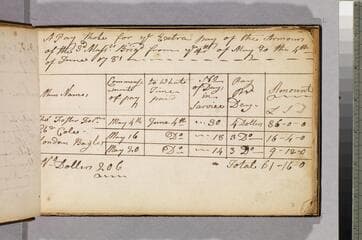 A Pay Note for ye Extra pay of the Armour
of the 3d Massts Brigd from ye 4th of May to the 4th
of June 1781
Mens Names Commencement of pay to What Time paid No of Days in Service Pay Pr Day Amount
£ S d
Foster May 4th June 4th 30 4 Dollers 36-0-0
Cole May 16 Do 18 3 Do 16-4-0
London Bagley May 20 Do 14 3 Do 9-12-0
No Dollers 206 Total 61-16-0